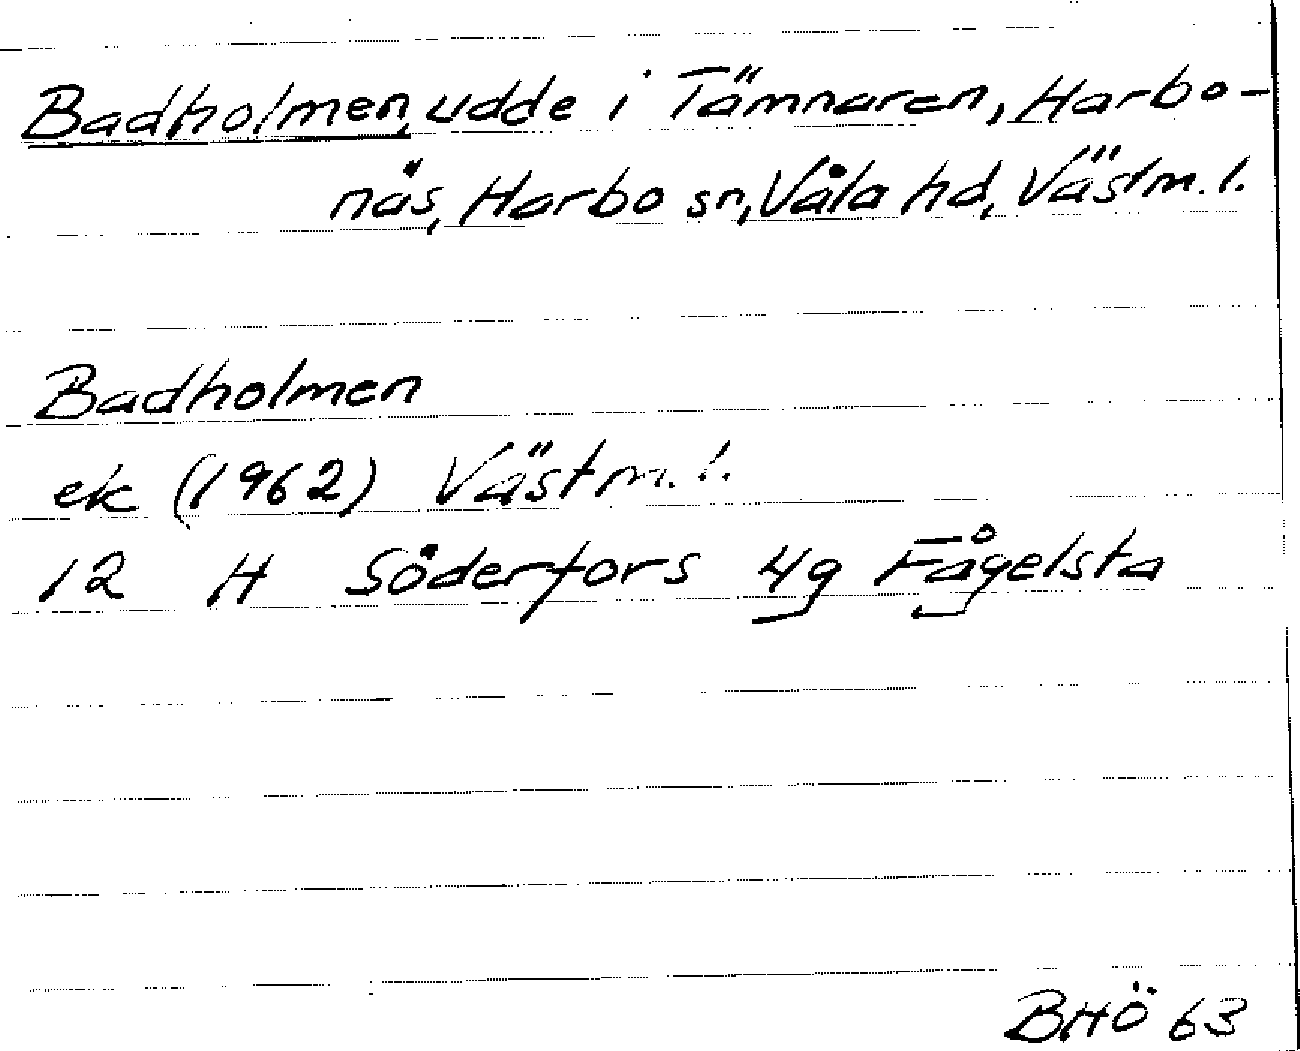 Badholmen, udde i Tämnaren, Harbo-
näs, Harbo sn, Våla hd, Västm. l.
Badholmen
ek (1962) Västm. l.
12 H Söderfors 4g Fågelsta
BHÖ 63